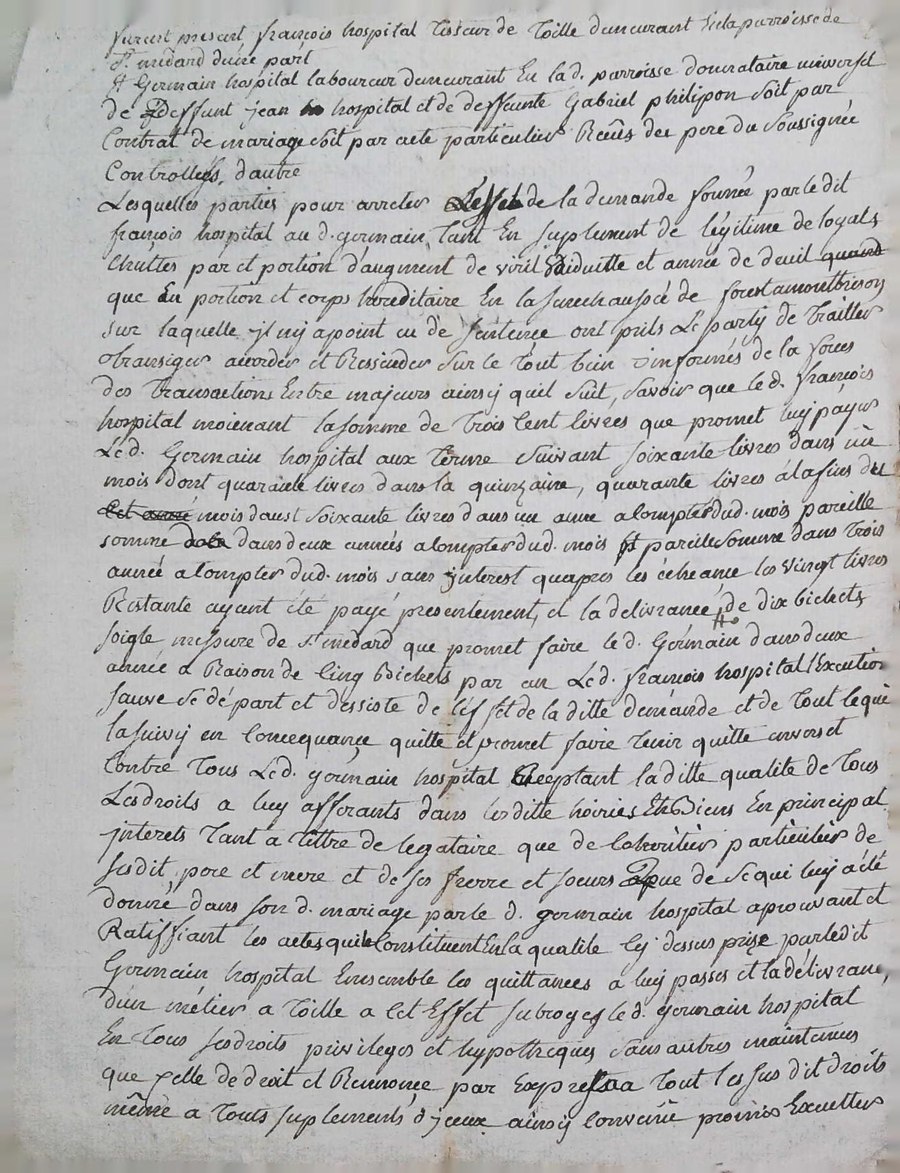 furent present françois hospital Tisseur de Toille demeurant En la parroisse de
St. médard d'une part
Et Germain hospital laboureur demeurant En la d. parroisse donnataire universel
de deffunt jean hospital et de deffunte Gabriel philipon soit par
Contrat de mariage soit par acte particulier Reçûs du pere du soussignée
Controllées, d'autre
Lesquelles parties pour arreter L'effet de la demande formée par ledit
françois hospital au d. germain, Tant En suplement de légitime de loyals
Chuttes part et portion d'augment de viril viduitté et année de deuil
que En portion et corps hereditaire En la senechaussée de forest a montbrison
sur laquelle il n'y a point eu de sentence ont pris Le party de Traitter
transiger accorder et Ressinder sur le Tout bien informés de la force
des Transactions Entre majeurs ainsy quil suit, savoir que le d. françois
hospital moienant la somme de Trois Cent livres que promet luy payer
Le d. Germain hospital aux Terme suivant soixante livres dans un
mois dont quarante livres dans la quinzaine, quarante livres a la fin du
mois daust soixante livres dans un anné a Compter dud. mois pareille
somme dans deux années a Compter dud. mois pareille somme dans Trois
année a Compter dud. mois sans interest quapres les écheance les vingt livres
Restante ayant été payé presentement, et la delivrance de dix bichets
soigle messure de St. medard que promet faire le d. Germain dans deux
année a Raison de Cinq Bichets par an Le d. françois hospital l'Execution
sauve se départ et dessiste de l'effet de la ditte demande et de Tout le qui
la suivy en Consequance quitte et promet faire Tenir quitte envers et
Contre Tous Le d. germain hospital acceptant la ditte qualité de Tous
Les droits a luy afferants dans les ditte hoiries Et Biens En principal
jnterets Tant a Tittre de legataire que de Cohéritier particulier de
ses dit pere et mere et de ses frerre et soeurs que de se qui luy a été
donné dans son d. mariage par le d. germain hospital aprouvant et
Ratiffiant les actes qui le Constituent En la qualité Cy dessus prise par ledit
Germain hospital Ensemble les quittances a luy passes et la délivrance
d'un métier a Toille a Cet Effet subroge le d. germain hospital
En Tous ses droits privileges et hypotheques sans autres maintenues
que Celle de droit et Renonce par Exprès a Tout les sus dit droits
même a Touts suplements d'jceux ainsy Convenû promis Executter